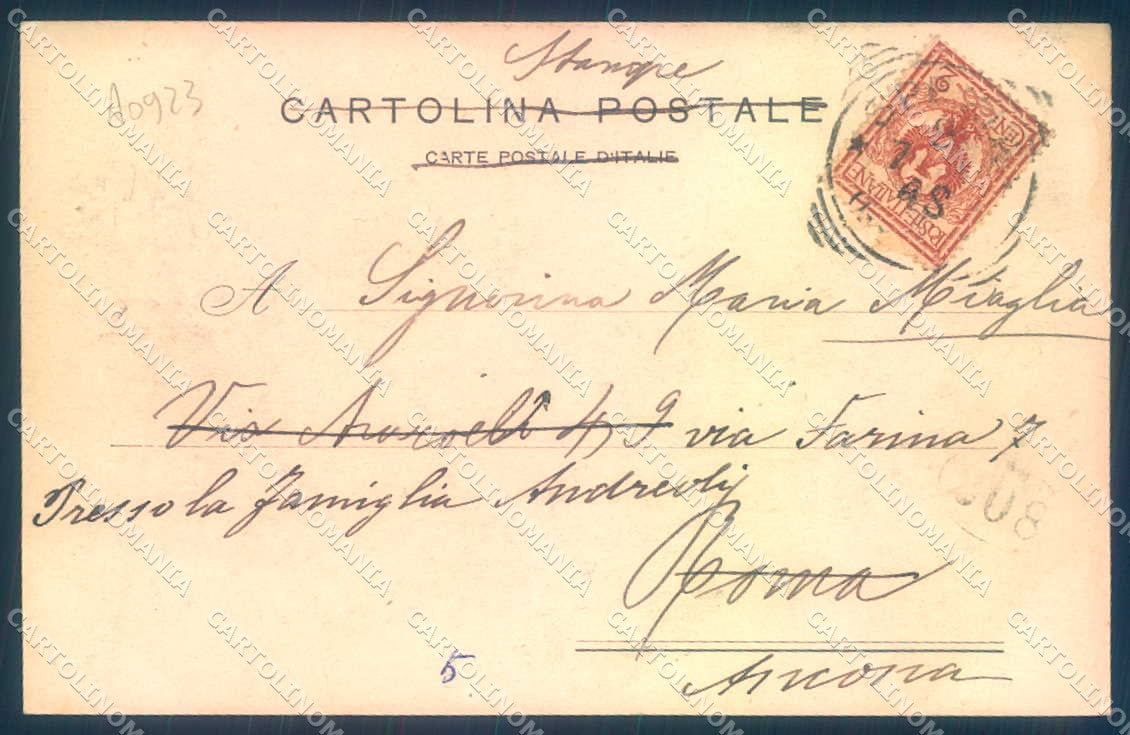 Stampe
A0923
CARTOLINA POSTALE
CARTE POSTALE D'ITALIE
2
CENTES
POSTE ITALIANE
7
A Signorina Maria Miraglia
Via Aracoeli 4, 9 via Farina 7
Presso la famiglia Andreoly
Roma
Ancona
5
CARTOLINOMANIA